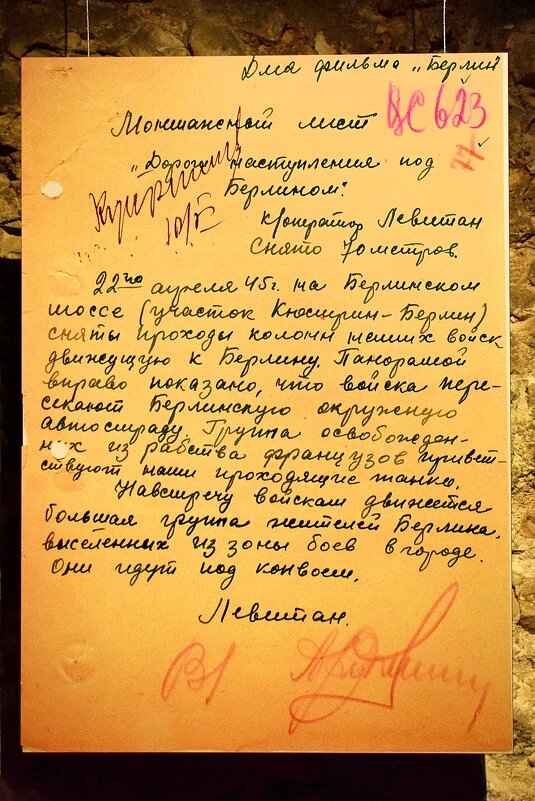 Для фильма „Берлин
Монтажный лист
ВС 623
„Дорога наступления под
77
Берлином".
10/V
к/оператор Левитан
Снято 70 метров.
22го апреля 45г. на Берлинском
шоссе (участок Кюстрин-Берлин)
сняты проходы колонн наших войск
движущую к Берлину. Панорамой
вправо показано, что войска пере-
секают Берлинскую окружную
автостраду. Группа освобожден-
ных из рабства французов привет-
ствуют наши проходящие танки.
Навстречу войскам движется
большая группа жителей Берлина,
выселенных из зоны боев в городе.
Они идут под конвоем.
Левитан.